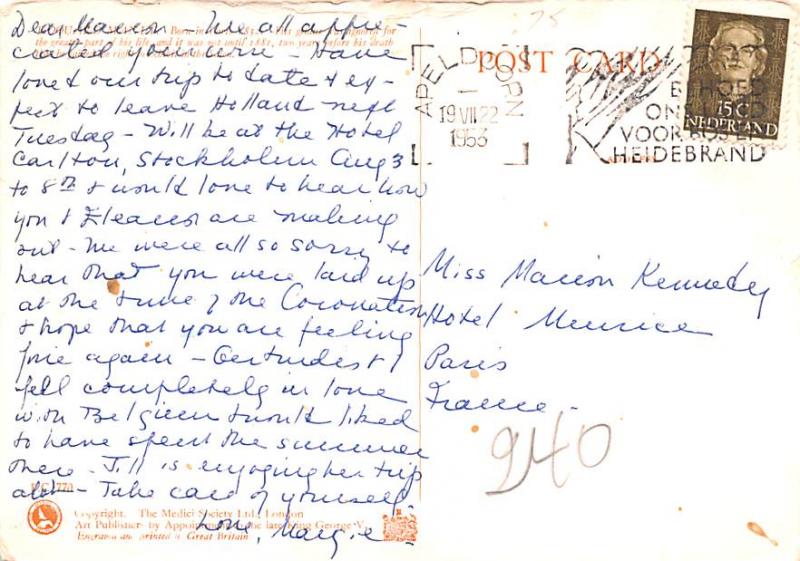 Dear Marion - We all appre-
ciated your
loved our trip to date & ex-
pect to leave Holland next
Tuesday - Will be at the Hotel
Carlton, Stockholm Aug 3
to 8th & would love to hear how
you & Eleanor are making
out - We were all so sorry to
hear that you were laid up
at the time of the Coronation
& hope that you are feeling
fine again - Gertrude & I
fell completely in love
with Belgium & would liked
to have spent the summer
there - Jill is enjoying her trip
a lot - Take care of yourself
Love, Margie -
Born in
for
the greater part of his life, and it was not until 1881, two years before his death
770
Copyright. The Medici Society Ltd., London
Art Publishers by Appointment to the late King George V.
Engraved and printed in Great Britain
75
POST CARD
APELDOORN
1
19 VII 22
1953
BEHOED
ONS
VOOR BOS- EN
HEIDEBRAND
15 C
NEDERLAND
Miss Marion Kennedy
Hotel Meurice
Paris
France -
940